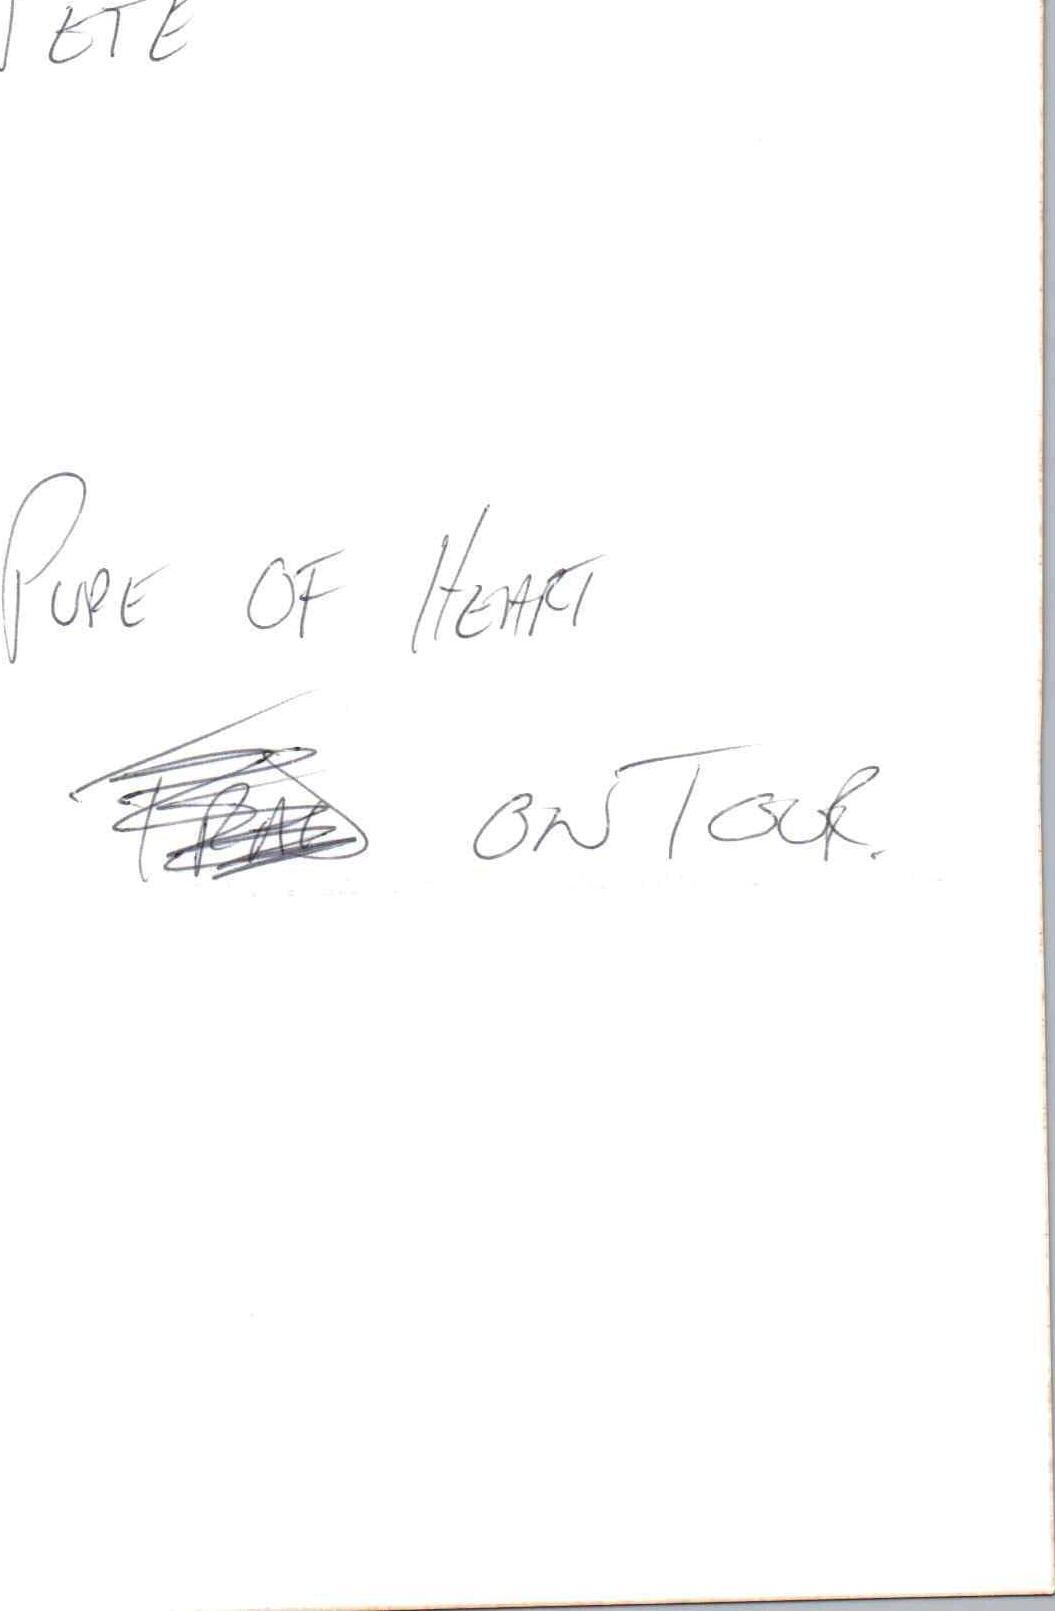 ETE
PURE OF HEART
ON TOUR.